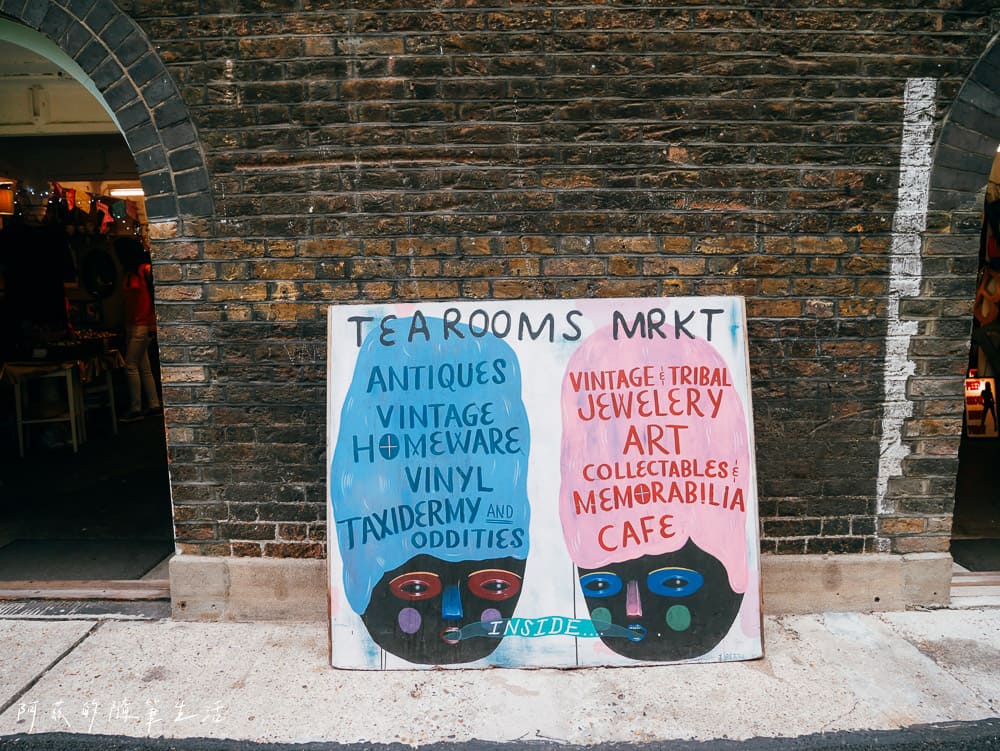 TEAROOMS MRKT
ANTIQUES
VINTAGE
HOMEWARE
VINYL
TAXIDERMY AND
ODDITIES
VINTAGE & TRIBAL
JEWELERY
ART
COLLECTABLES &
MEMORABILIA
CAFE
INSIDE....
阿辰的隨筆生活